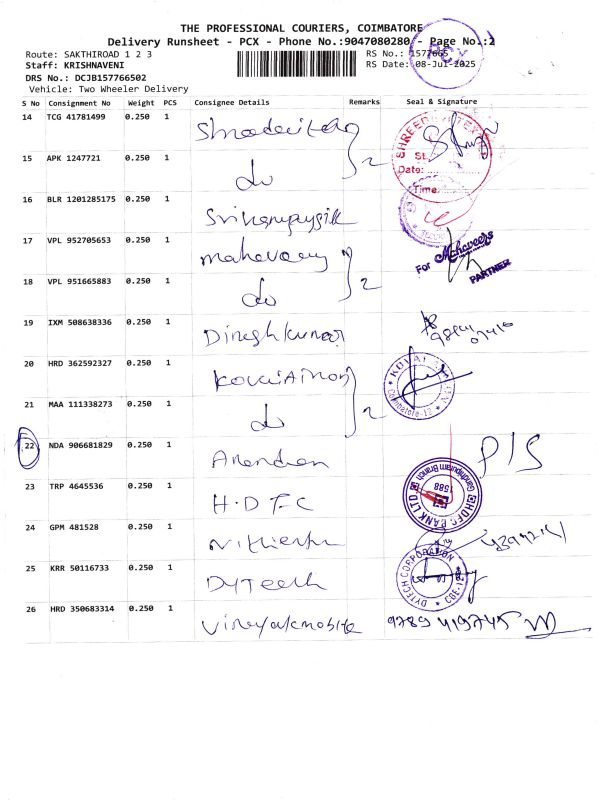 THE PROFESSIONAL COURIERS, COIMBATORE
Delivery Runsheet - PCX - Phone No.:9047080280 - Page No.:2
PCX
Route: SAKTHIROAD 1 2 3
RS No.: 1577665
Staff: KRISHNAVENI
RS Date: 08-Jul-2025
DRS No.: DCJB157766502
Vehicle: Two Wheeler Delivery
S No Consignment No Weight PCS Consignee Details Remarks Seal & Signature
14 TCG 41781499 0.250 1
SHREE
St
Date:
Time:
15 APK 1247721 0.250 1 do 2
16 BLR 1201285175 0.250 1
17 VPL 952705653 0.250 1
For Mahaveers
PARTNER
18 VPL 951665883 0.250 1 do 2
19 IXM 508638336 0.250 1 Dineshkumar
20 HRD 362592327 0.250 1
KOVAI
Coimbatore-12
21 MAA 111338273 0.250 1 do 2
22 NDA 906681829 0.250 1 P/S
23 TRP 4645536 0.250 1 H.D.F.C
HDFC BANK LTD
Gandhipuram Branch
1588
24 GPM 481528 0.250 1
25 KRR 50116733 0.250 1 DyTech
DYTECH CORPORATION
CBE-12
26 HRD 350683314 0.250 1 Vinayakmobile 9789 419745